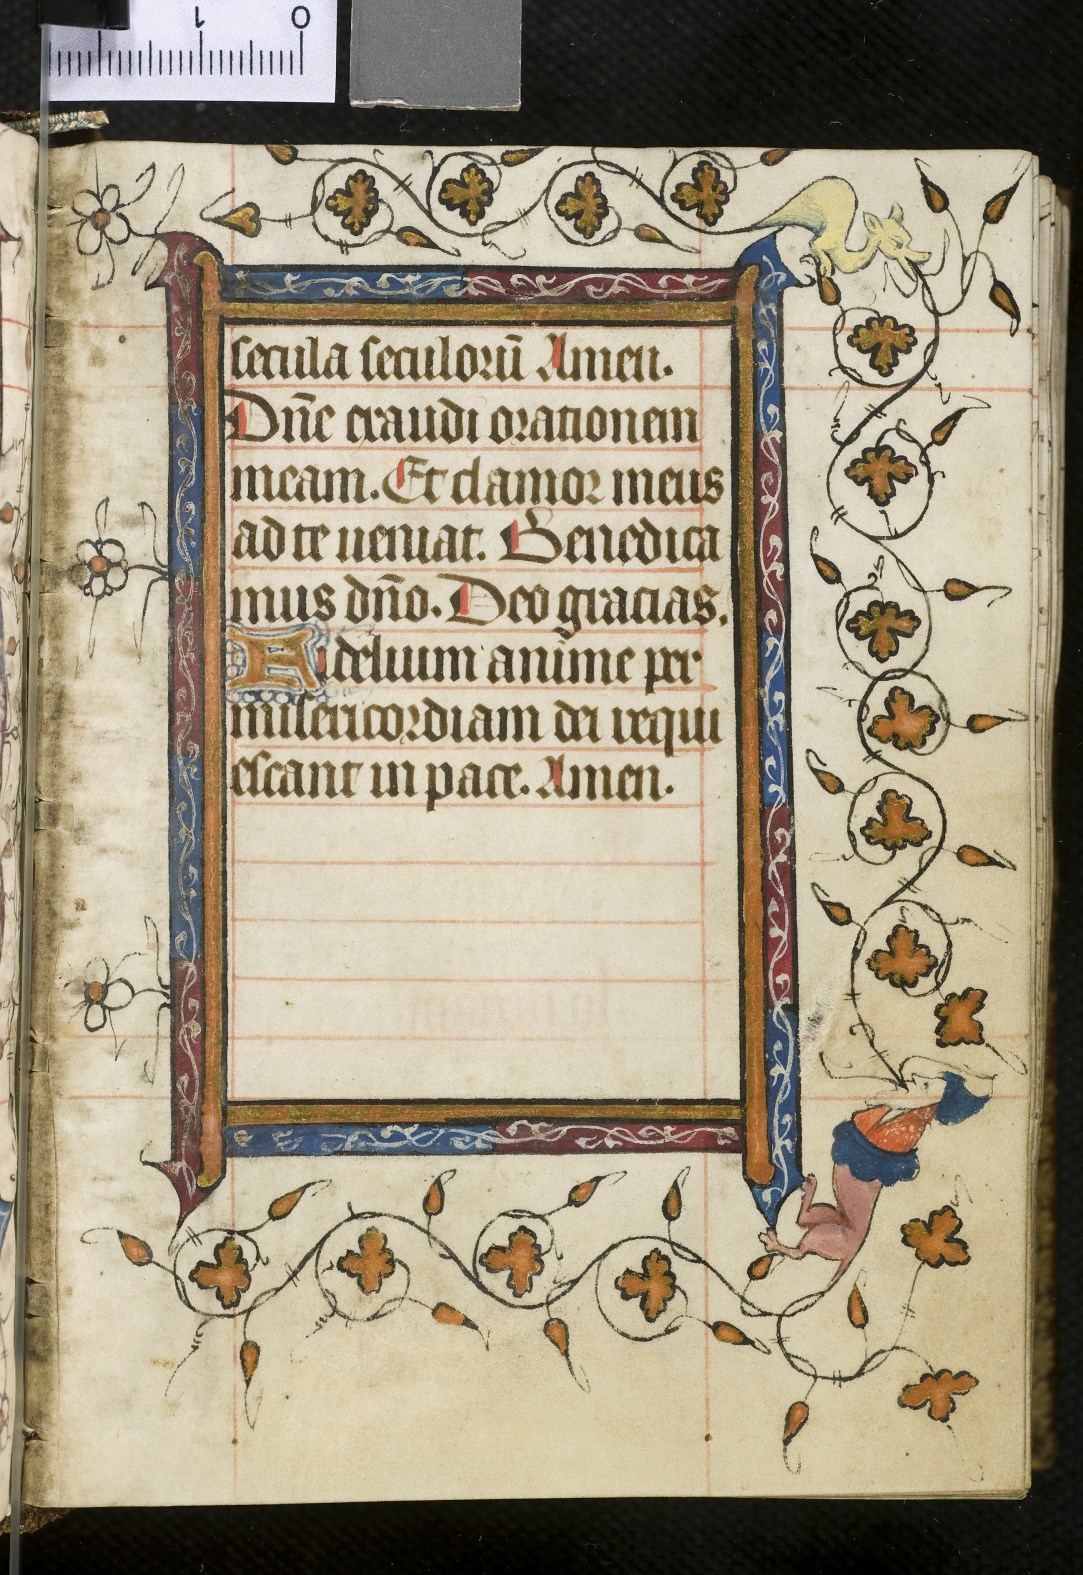 0 1
secula seculorū Amen.
Dn̄e exaudi orationem
meam. Et clamor meus
ad te ueniat. Benedica
mus dn̄o. Deo gracias.
Fidelium anime per
misericordiam dei requi
escant in pace. Amen.